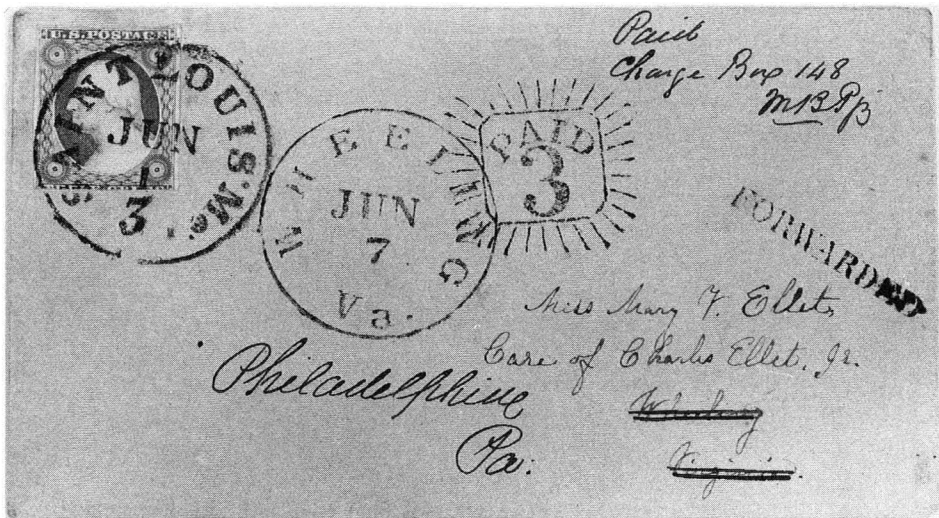 U.S. POSTAGE
SAINT LOUIS Mo.
JUN
1
3
WHEELING
JUN
7
Va.
PAID
3
Paid
Charge Box 148
FORWARDED
Miss Mary V. Ellet,
Care of Charles Ellet, Jr.
Wheeling
Virginia.
Philadelphia
Pa.